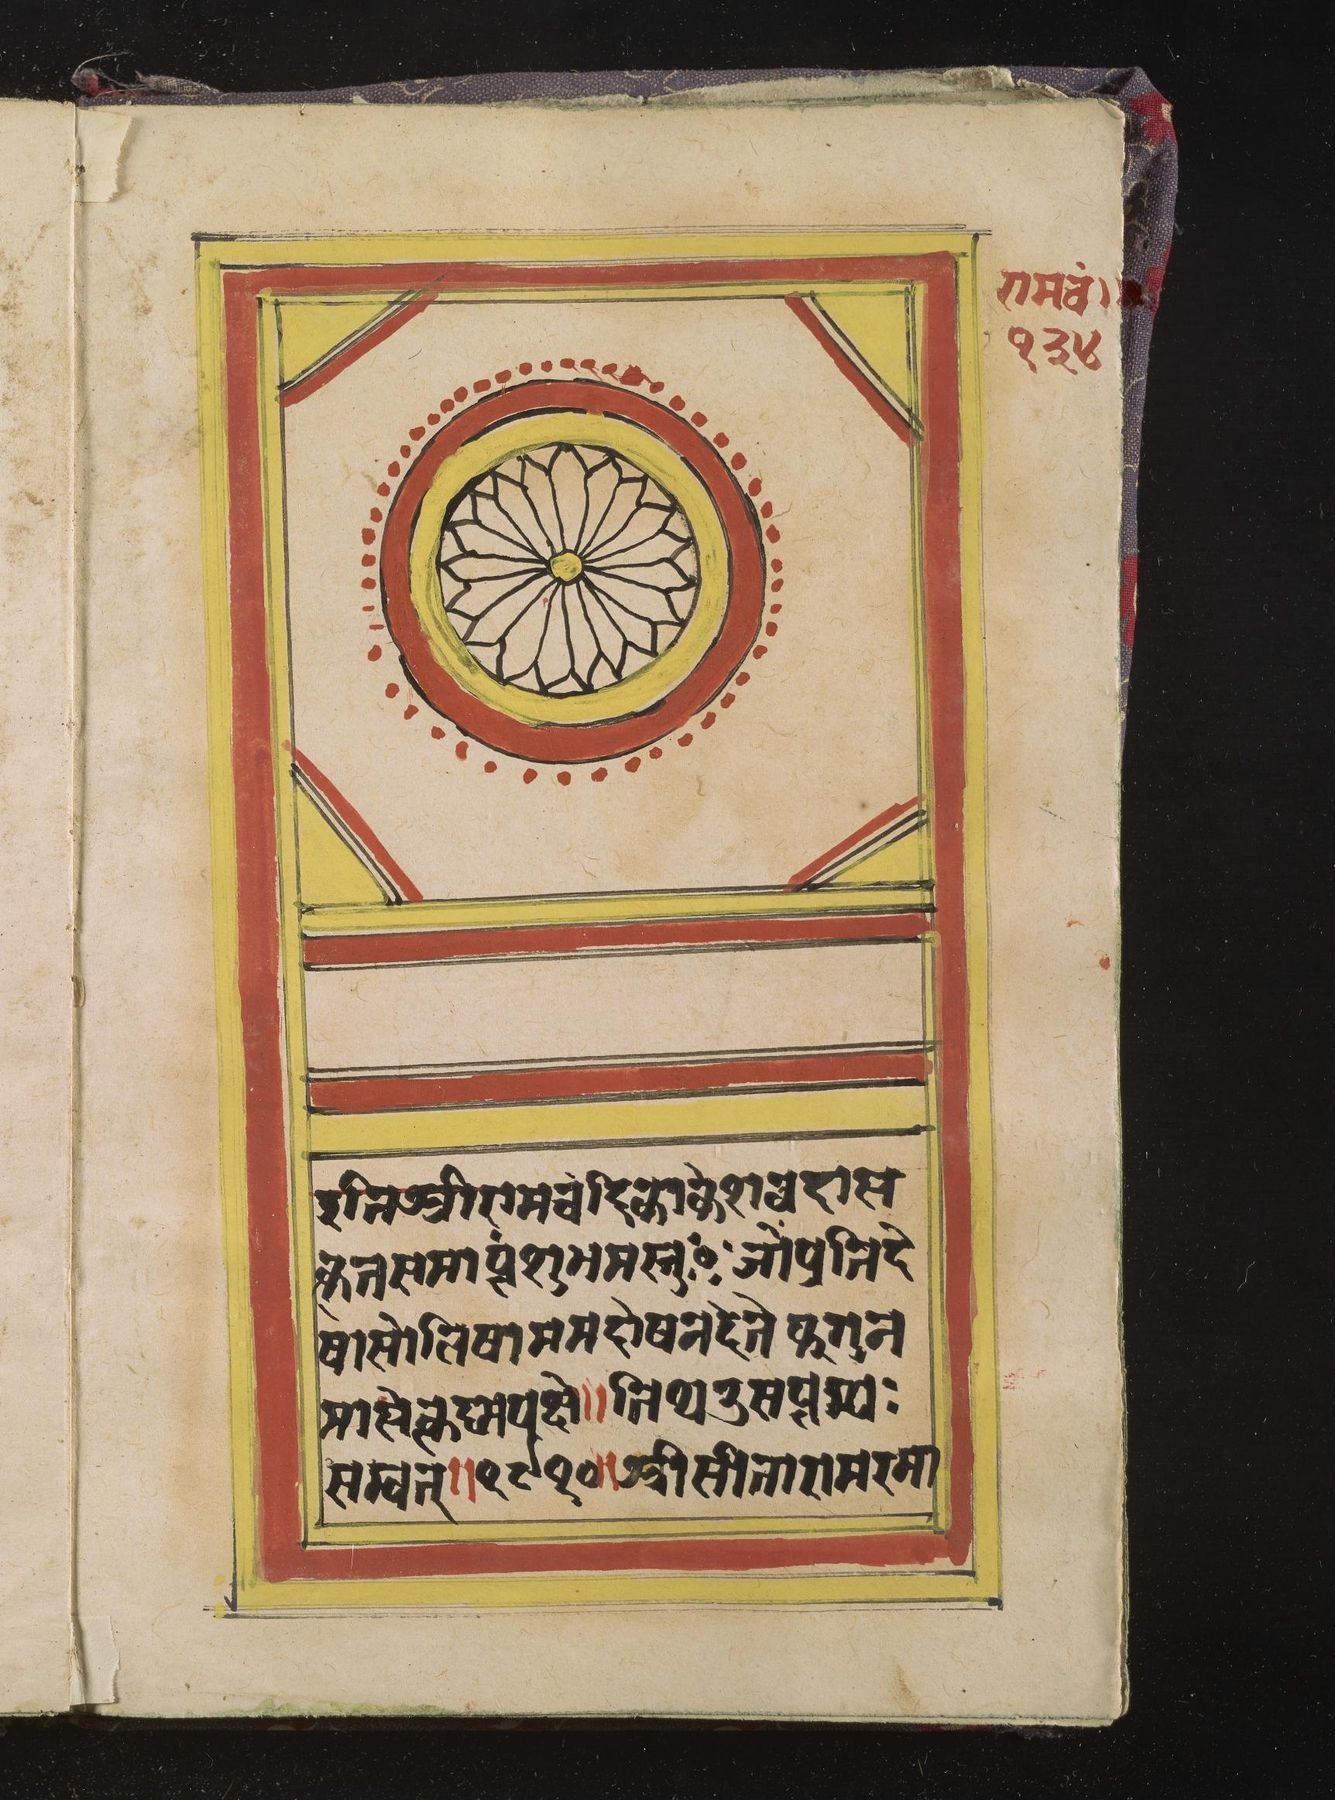 रामचं।।
१३४
इति श्रीरामचंद्रिका केशवदास
केत समाप्तं शुभमस्तु जों प्रति दे
षा सो लिषा मम दोष न देते फगुन
मासे कृष्णपक्षे॥ तिथउ सप्तम्या:
सम्वत्॥ १८९०॥ श्री सीताराम रमा